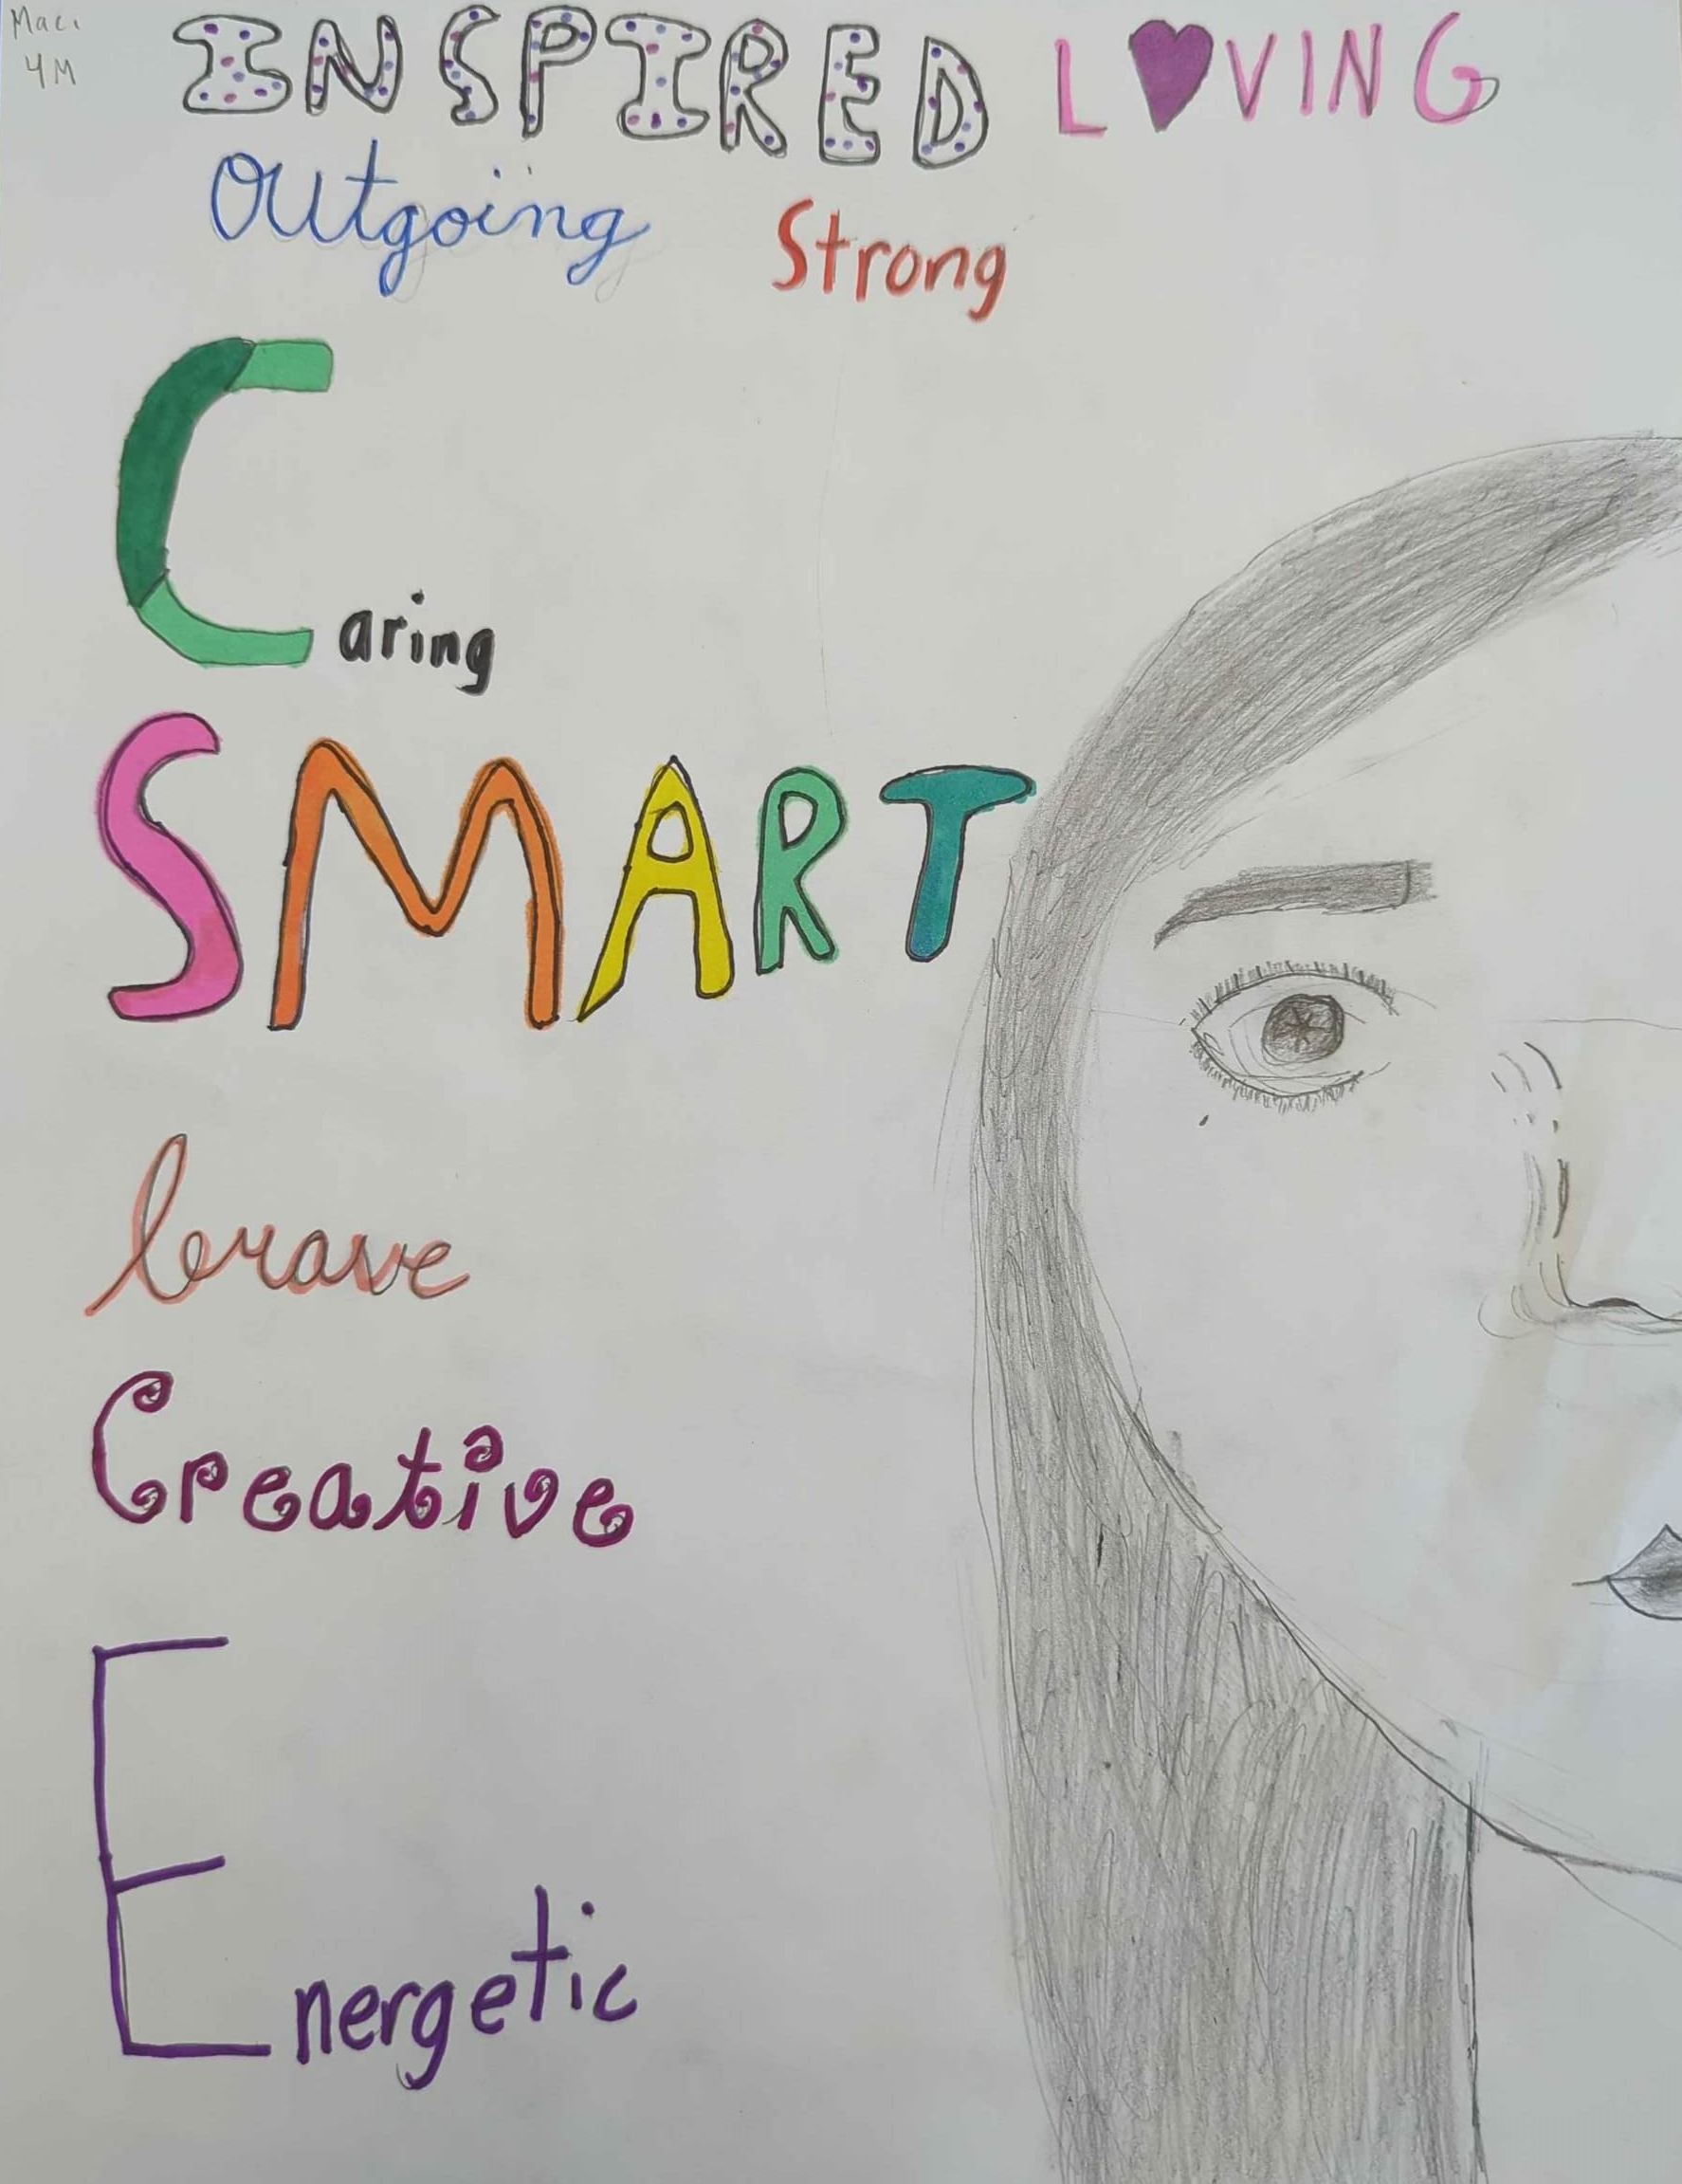 Maci
4M
INSPIRED L♥VING
Outgoing Strong
Caring
SMART
brave
Creative
Energetic